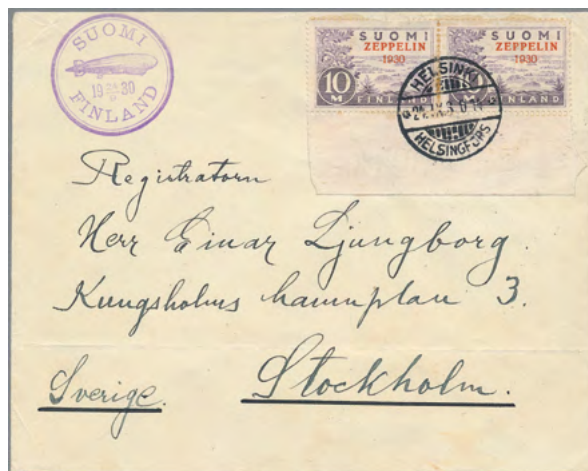 SUOMI
1930
FINLAND
SUOMI
ZEPPELIN
1930
10 M
FINLAND
SUOMI
ZEPPELIN
1930
FINLAND
HELSINKI
HELSINGFORS
Registratorn
Herr Einar Ljungborg.
Kungsholms hamnplan 3.
Stockholm.
Sverige.